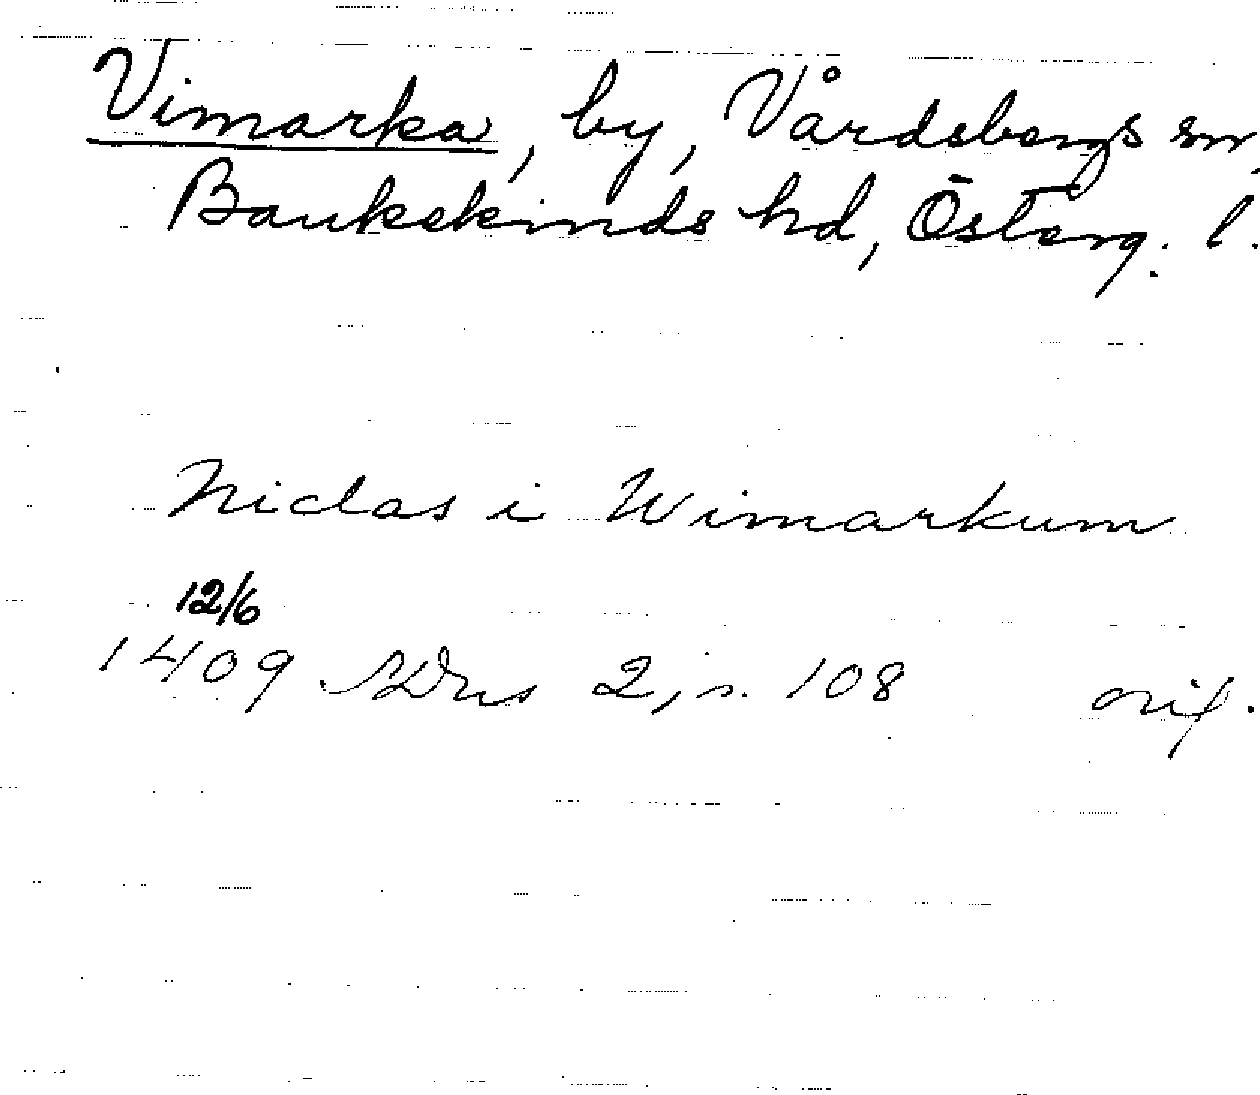 Vimarka, by, Vårdsbergs sn,
Bankekinds hd, Österg. l.
Niclas i Wimarkum
12/6
1409 SDns 2, s. 108 orig.